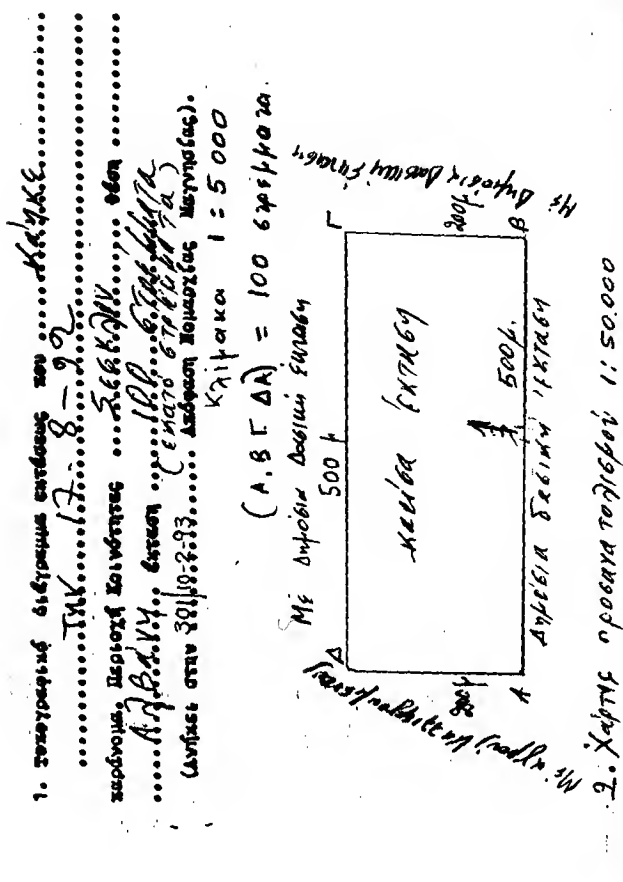 1. Τοπογραφικό διάγραμμα εκτάσεως που κάηκε
την 17-8-92
παράνομα. Περιοχή Κοινότητας Σέσκλου θέση
Αλβανη έκταση 100 στρέμματα
(εκατό στρέμματα)
(Ανήκει στην 301/10-2-93 Απόφαση Νομαρχίας Μαγνησίας).
Κλίμακα 1:5000
(Α.Β.Γ.ΔΑ) = 100 στρέμματα.
Μέ Δημόσια Δασική έκταση
500 μ
Δ
Γ
Μέ αγρούς καλλιεργουμένους
200μ
καείσα έκταση
200μ
Μέ Δημόσια Δασική Έκταση
500μ.
Α
Β
Δημόσια δασική έκταση
2. Χάρτης προσανατολισμού 1:50.000